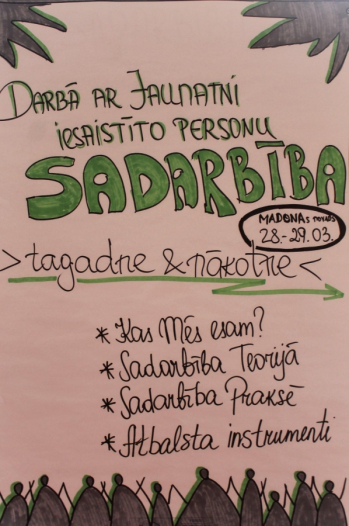 DARBĀ AR JAUNATNI
IESAISTĪTO PERSONU
SADARBĪBA
MADONAS novads
28.-29.03.
>tagadne & nākotne<
*Kas Mēs esam?
*Sadarbība Teorijā
*Sadarbība Praksē
*Atbalsta instrumenti